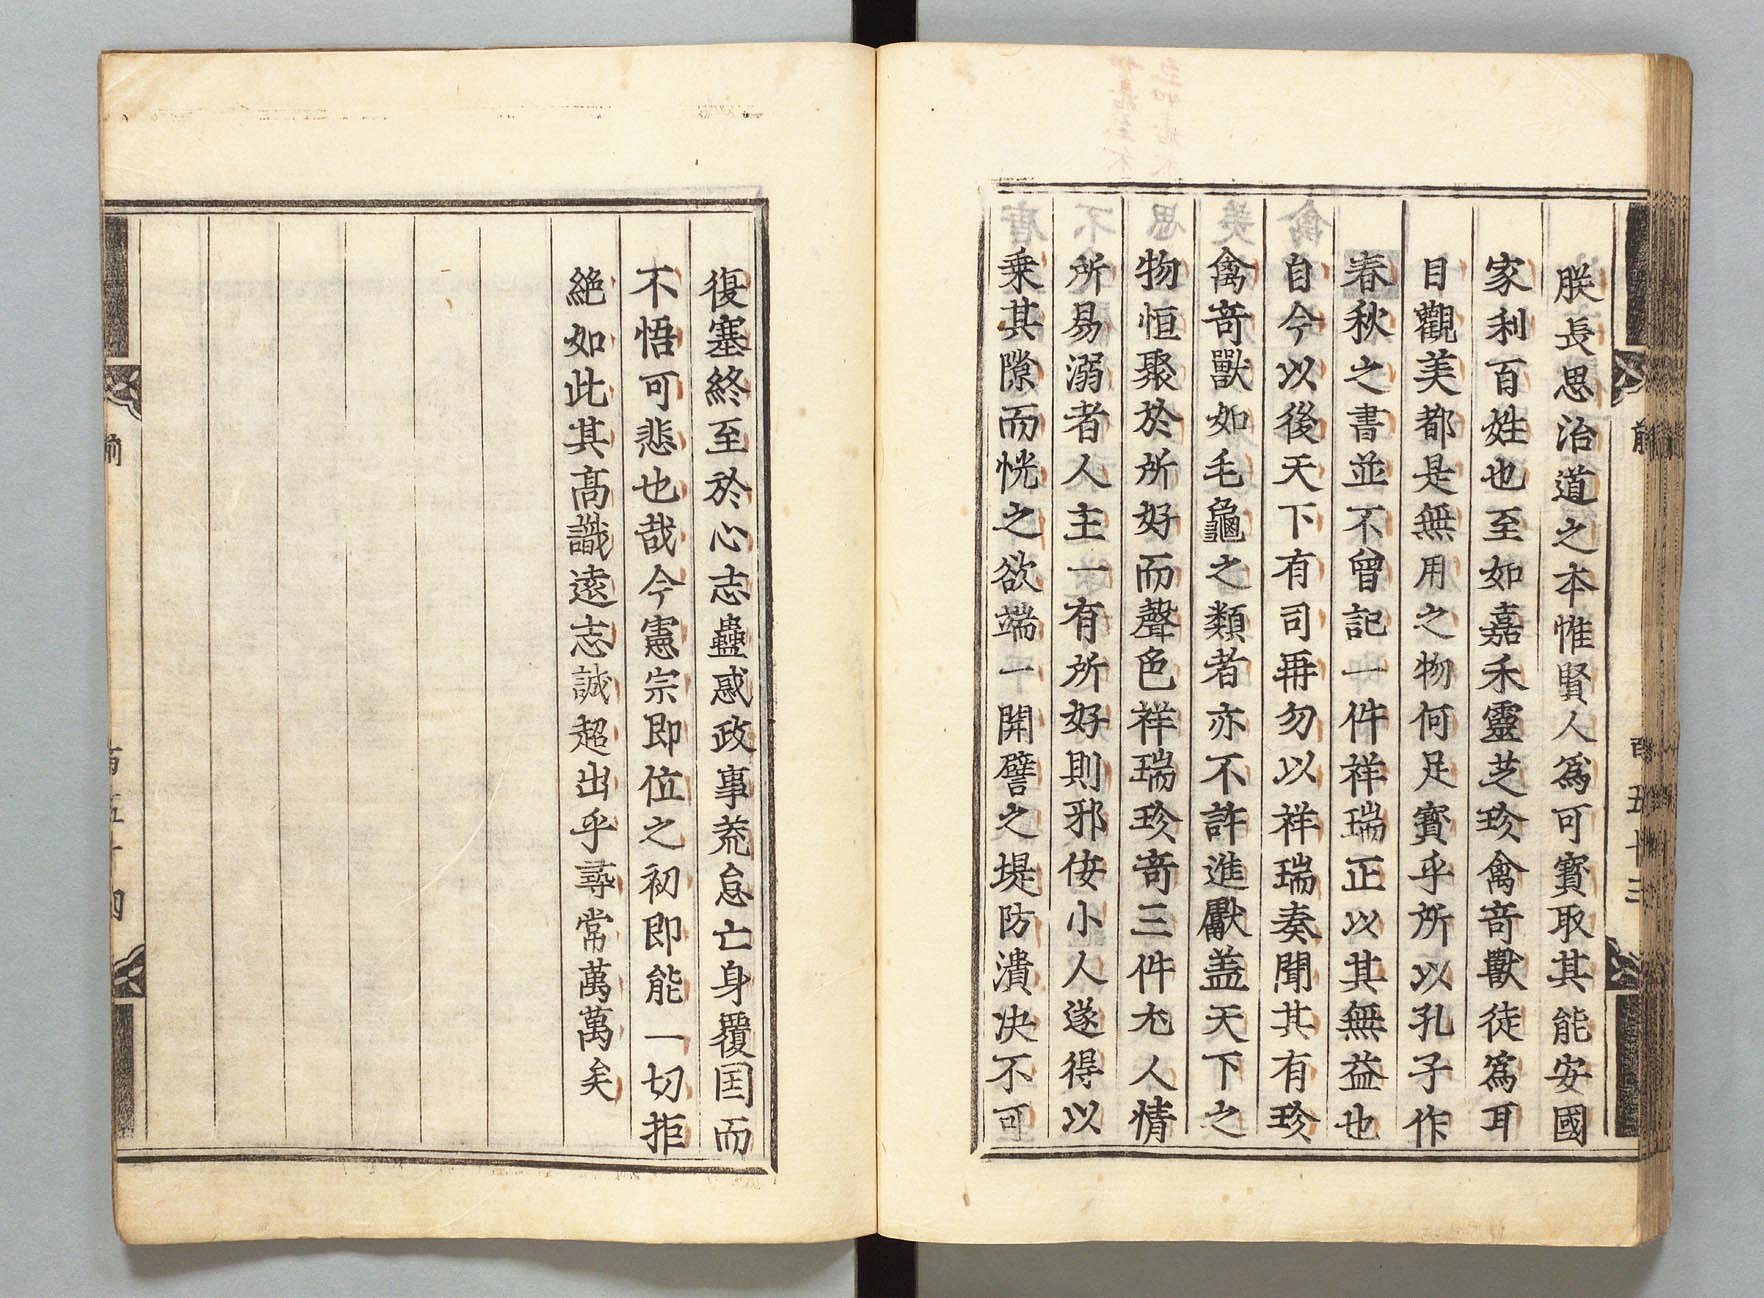 朕長思治道之本惟賢人爲可寳取其能安國
家利百姓也至如嘉禾靈芝珍禽竒獸徒爲耳
目觀美都是無用之物何足寳乎所以孔子作
春秋之書並不曾記一件祥瑞正以其無益也
自今以後天下有司再勿以祥瑞奏聞其有珍
禽竒獸如毛龜之類者亦不許進獻盖天下之
物恒聚於所好而聲色祥瑞珍竒三件尤人情
所易溺者人主一有所好則邪佞小人遂得以
乗其隙而恍之欲端一開譬之堤防潰决不可
復塞終至於心志蠱惑政事荒怠亡身覆国而
不悟可悲也哉今憲宗即位之初即能一切拒
絶如此其高識遠志誠超出乎尋常萬萬矣
前
五十三